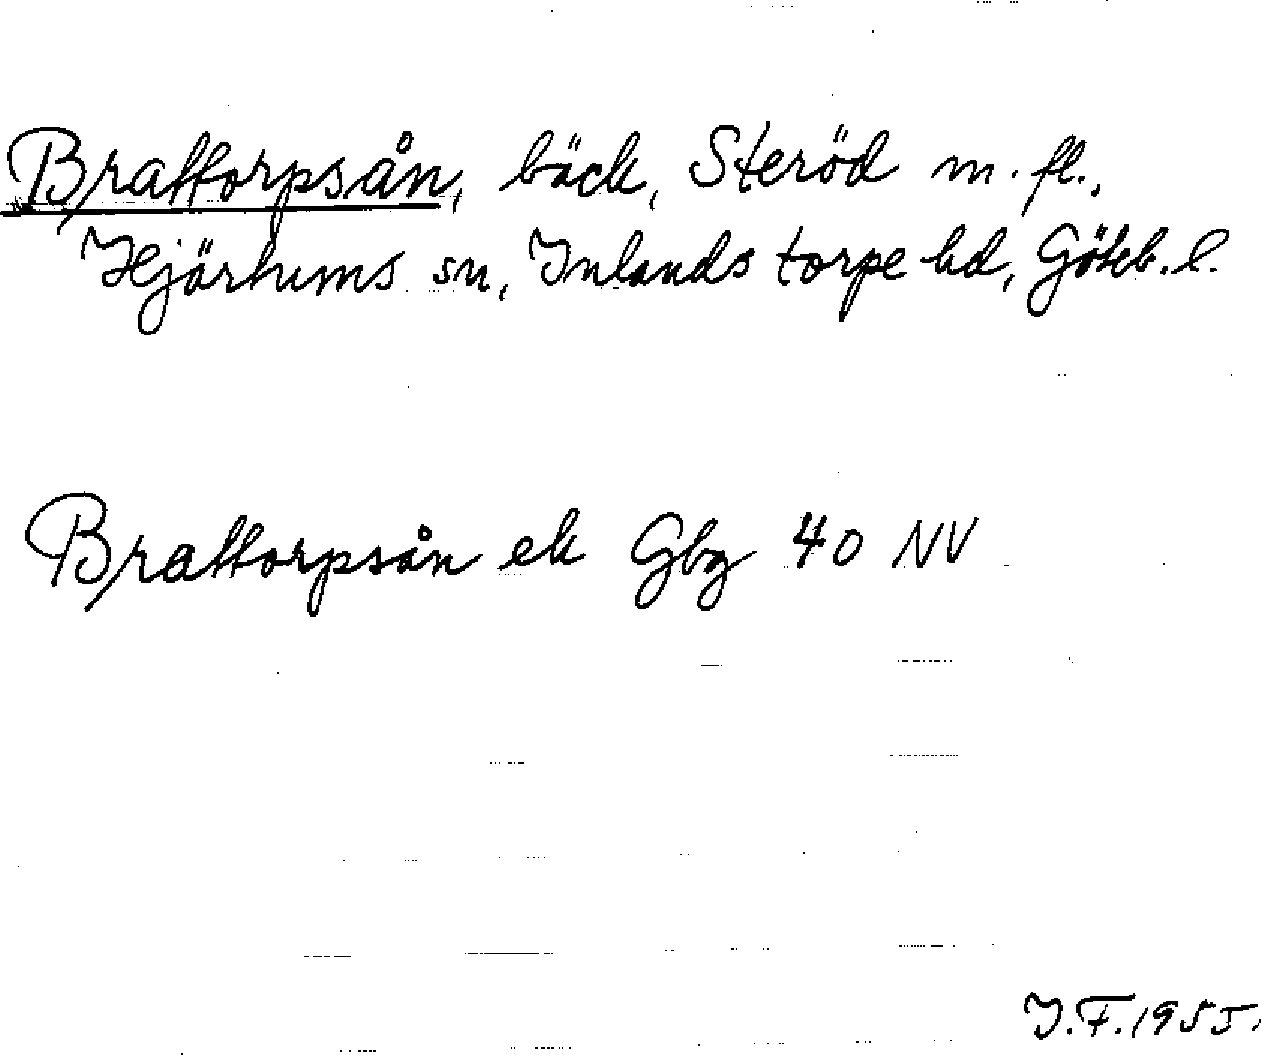 Brattorpsån, bäck, Steröd m. fl.,
Hjärtums sn, Inlands torpe hd, Göteb. l.
Brattorpsån ek Gbg 40 NV
I.F. 1955.